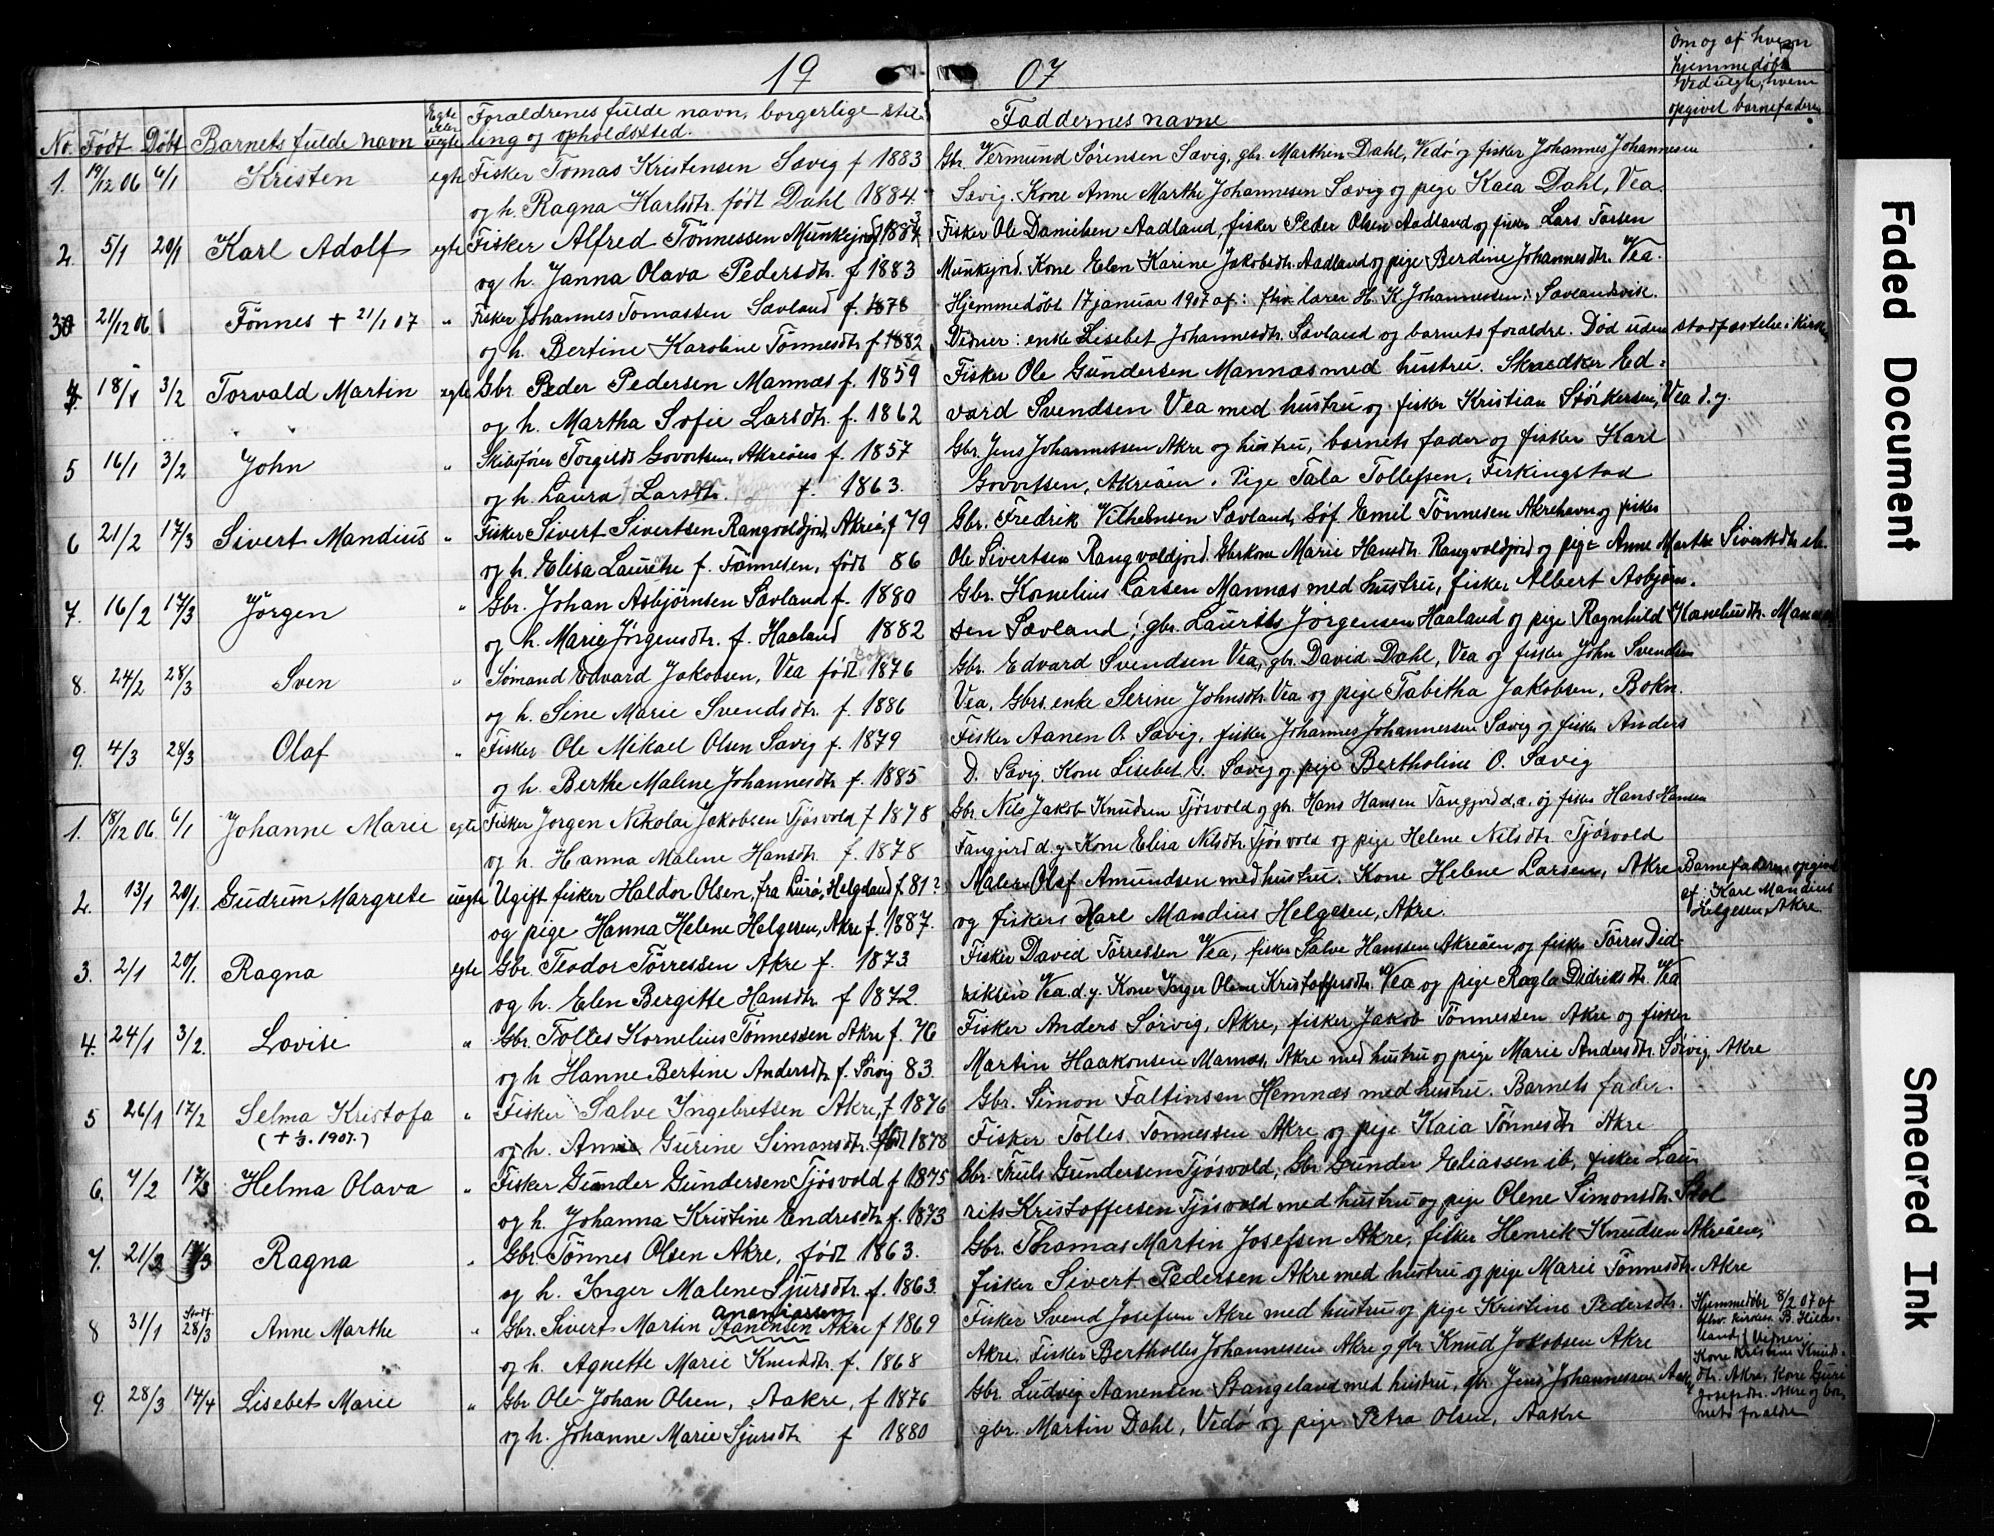 19 07
Om og af hvem
hjemmedøbt
Ved uegte, hvem
opgivet barnefaderen
No. Født Døbt Barnets fulde navn Egte eller uegte Forældrenes fulde navn, borgerlige stil-
ling og opholdssted. Faddernes navne
1. 19/12 06 6/1 Kristen egte Fisker Tomas Kristensen Sævig f 1883 Gbr. Vermund Sørensen Sævig, gbr. Marthin Dahl, Vedø og fisker Johannes Johannesen
og h. Ragna Karlsdtr. født Dahl 1884. Sævig. Kone Anne Marthe Johannesen Sævig og pige Kaia Dahl, Vea.
2. 5/1 20/1 Karl Adolf egte Fisker Alfred Tønnessen Munkejord 1883 Fisker Ole Danielsen Aadland, fisker Peder Olsen Aadland og fisker Lars Torsen
og h. Janna Olava Pedersdtr. f 1883 Munkejord. Kone Elen Karine Jakobsdtr. Aadland og pige Berdine Johannesdtr. Vea.
3 21/12 06 Tønnes + 21/1 07 " Fisker Johannes Tomassen Sævland f. 1878 Hjemmedøbt 17 januar 1907 af: fhv. lærer H. K. Johannessen, Sævlandsvik.
og h. Bertine Karoline Tønnesdtr f 1882 Vidner: enke Lisebet Johannesdtr. Sævland og barnets forældre. Død uden stadfæstelse i kirken
4. 18/1 3/2 Torvald Martin egte Gbr. Peder Pedersen Mannæs f. 1859 Fisker Ole Gundersen Mannæs med hustru. Skrædker Ed-
og h. Martha Sofie Larsdtr. f. 1862 vard Svendsen Vea med hustru og fisker Kristian Størkersen, Vea d. y.
5 16/1 3/2 John " Skibsfører Torgils Govertsen, Akreøen f. 1857 Gbr. Jens Johannessen Akre og hustru, barnets fader og fisker Karl
og h. Laura Larsdtr. f. 1863. Govertsen, Akreøen. Pige Tala Tollefsen, Ferkingstad
6 21/2 17/3 Sivert Mandius " Fisker Sivert Sivertsen Rangvoldjord, Akreø f 79 Gbr. Fredrik Vilhelmsen Sævland, Søf. Emil Tønnesen Akrehavn og fisker
og h. Elisa Laurthe f. Tønnesen, født 86 Ole Sivertsen Rangvoldjord. Gbrkone Marie Hansdtr. Rangvoldjord og pige Anne Marthe Sivertsdtr. ib.
7. 16/2 17/3 Jørgen " Gbr. Johan Asbjørnsen Sævland f. 1880 Gbr. Kornelius Larsen Mannæs med hustru, fisker Albert Asbjørn-
og h. Marie Jørgensdtr. f. Haaland 1882 sen Sævland, gbr. Laurits Jørgensen Haaland og pige Ragnhild Korneliusdtr. Mannæs
8. 24/2 28/3 Sven " Sømand Edvard Jakobsen, Vea født Bokn 1876 Gbr. Edvard Svendsen Vea, gbr. David Dahl, Vea og fisker John Svendsen
og h. Sine Marie Svendsdtr. f. 1886 Vea, Gbrs. enke Serine Johnsdtr. Vea og pige Tabitha Jakobsen, Bokn.
9. 4/3 28/3 Olaf " Fisker Ole Mikael Olsen Sævig f. 1879 Fisker Aanen O. Sævig, fisker Johannes Johannessen Sævig og fisker Anders
og h. Berthe Malene Johannesdtr f. 1885 D. Sævig. Kone Lisebet G. Sævig og pige Bertholine O. Sævig
1. 18/12 06. 6/1 Johanne Marie egte Fisker Jørgen Nikolai Jakobsen Tjøsvold f 1878 Gbr. Nils Jakob Knudsen Tjøsvold og gbr. Hans Hansen Tangjerd d. æ. og fisker Hans Hansen
og h. Hanna Malene Hansdtr. f. 1878. Tangjerd d. y. Kone Elisa Nilsdtr. Tjøsvold og pige Helene Nilsdtr. Tjøsvold
2. 13/1 20/1. Gudrun Margrete uegte Ugift fisker Haldor Olsen, fra Lurø, Helgeland f 81? Maler Olaf Amundsen med hustru. Kone Helene Larsen, Akre Barnefaderen opgivet
og pige Hanna Helene Helgesen, Akre f. 1887. og fisker Karl Mandius Helgesen, Akre. af Karl Mandius
Helgesen, Akre.
3. 2/1 20/1. Ragna egte Gbr. Teodor Tørressen Akre f. 1873 Fisker David Tørressen Vea, fisker Salve Hanssen Akreøen og fisker Tørres Did-
og h. Elen Bergitte Hansdtr. f 1872. riksen Vea d. y. Kone Inger Olene Kristoffersdtr. Vea og pige Ragla Didriksdtr. Vea
4. 24/1 3/2. Lovise " Gbr. Tolles Kornelius Tønnessen Akre f. 76 Fisker Anders Sørvig, Akre, fisker Jakob Tønnessen Akre og fisker
og h Hanne Bertine Andersdtr f. Sørvig 83. Martin Haakonsen Mannæs, Akre med hustru og pige Marie Andersdtr. Sørvig, Akre
5 26/1 17/2 Selma Kristofa " Fisker Salve Ingebretsen Akre, f 1876 Gbr. Simon Faltinsen Hemnæs med hustru. Barnets fader.
(+ 1/3. 1907.) og h. Anna Gurine Simonsdtr. født 1878 Fisker Tolles Tønnessen Akre og pige Kaia Tønnesdtr Akre
6. 7/2 17/3 Helma Olava " Fisker Gunder Gundersen Tjøsvold f 1875 Gbr. Truls Gundersen Tjøsvold, Gbr Gunder Eliassen ib, fisker Lau-
og h. Johanna Kristine Endresdtr f. 1873 rits Kristoffersen Tjøsvold med hustru og pige Olene Simonsdtr. Stol
7. 21/2 17/3 Ragna " Gbr. Tønnes Olsen Akre, født 1863. Gbr. Thomas Martin Josefsen Akre, fisker Henrik Knudsen Akreøen,
og h. Inger Malene Sjursdtr. f. 1863. fisker Sivert Pedersen Akre med hustru og pige Marie Tønnesdtr. Akre
8 31/1 Stadf. 28/3 Anne Marthe " Gbr. Sivert Martin Aanensen Ananiassen Akre f 1869 Fisker Svend Josefsen Akre med hustru og pige Kristine Pedersdtr. Hjemmedøbt 8/2 07 af
og h. Agnette Marie Knudsdtr. f. 1868 Akre. Fisker Bertholles Johannessen Akre og gbr Knud Jakobsen Akre
Vidner:
Kone Kristine Knuds-
dtr. Akre, kone Guri
Josefsdtr. Akre og bar-
nets forældre
9. 28/3 14/4 Lisebet Marie " Gbr Ole Johan Olsen, Aakre, f 1876 Gbr. Ludvig Aanensen Stangeland med hustru, gbr. Jens Johannessen Aakre
og h. Johanne Marie Sjursdtr f 1880 gbr. Martin Dahl, Vedø og pige Petra Olsen, Aakre
Faded Document
Smeared Ink